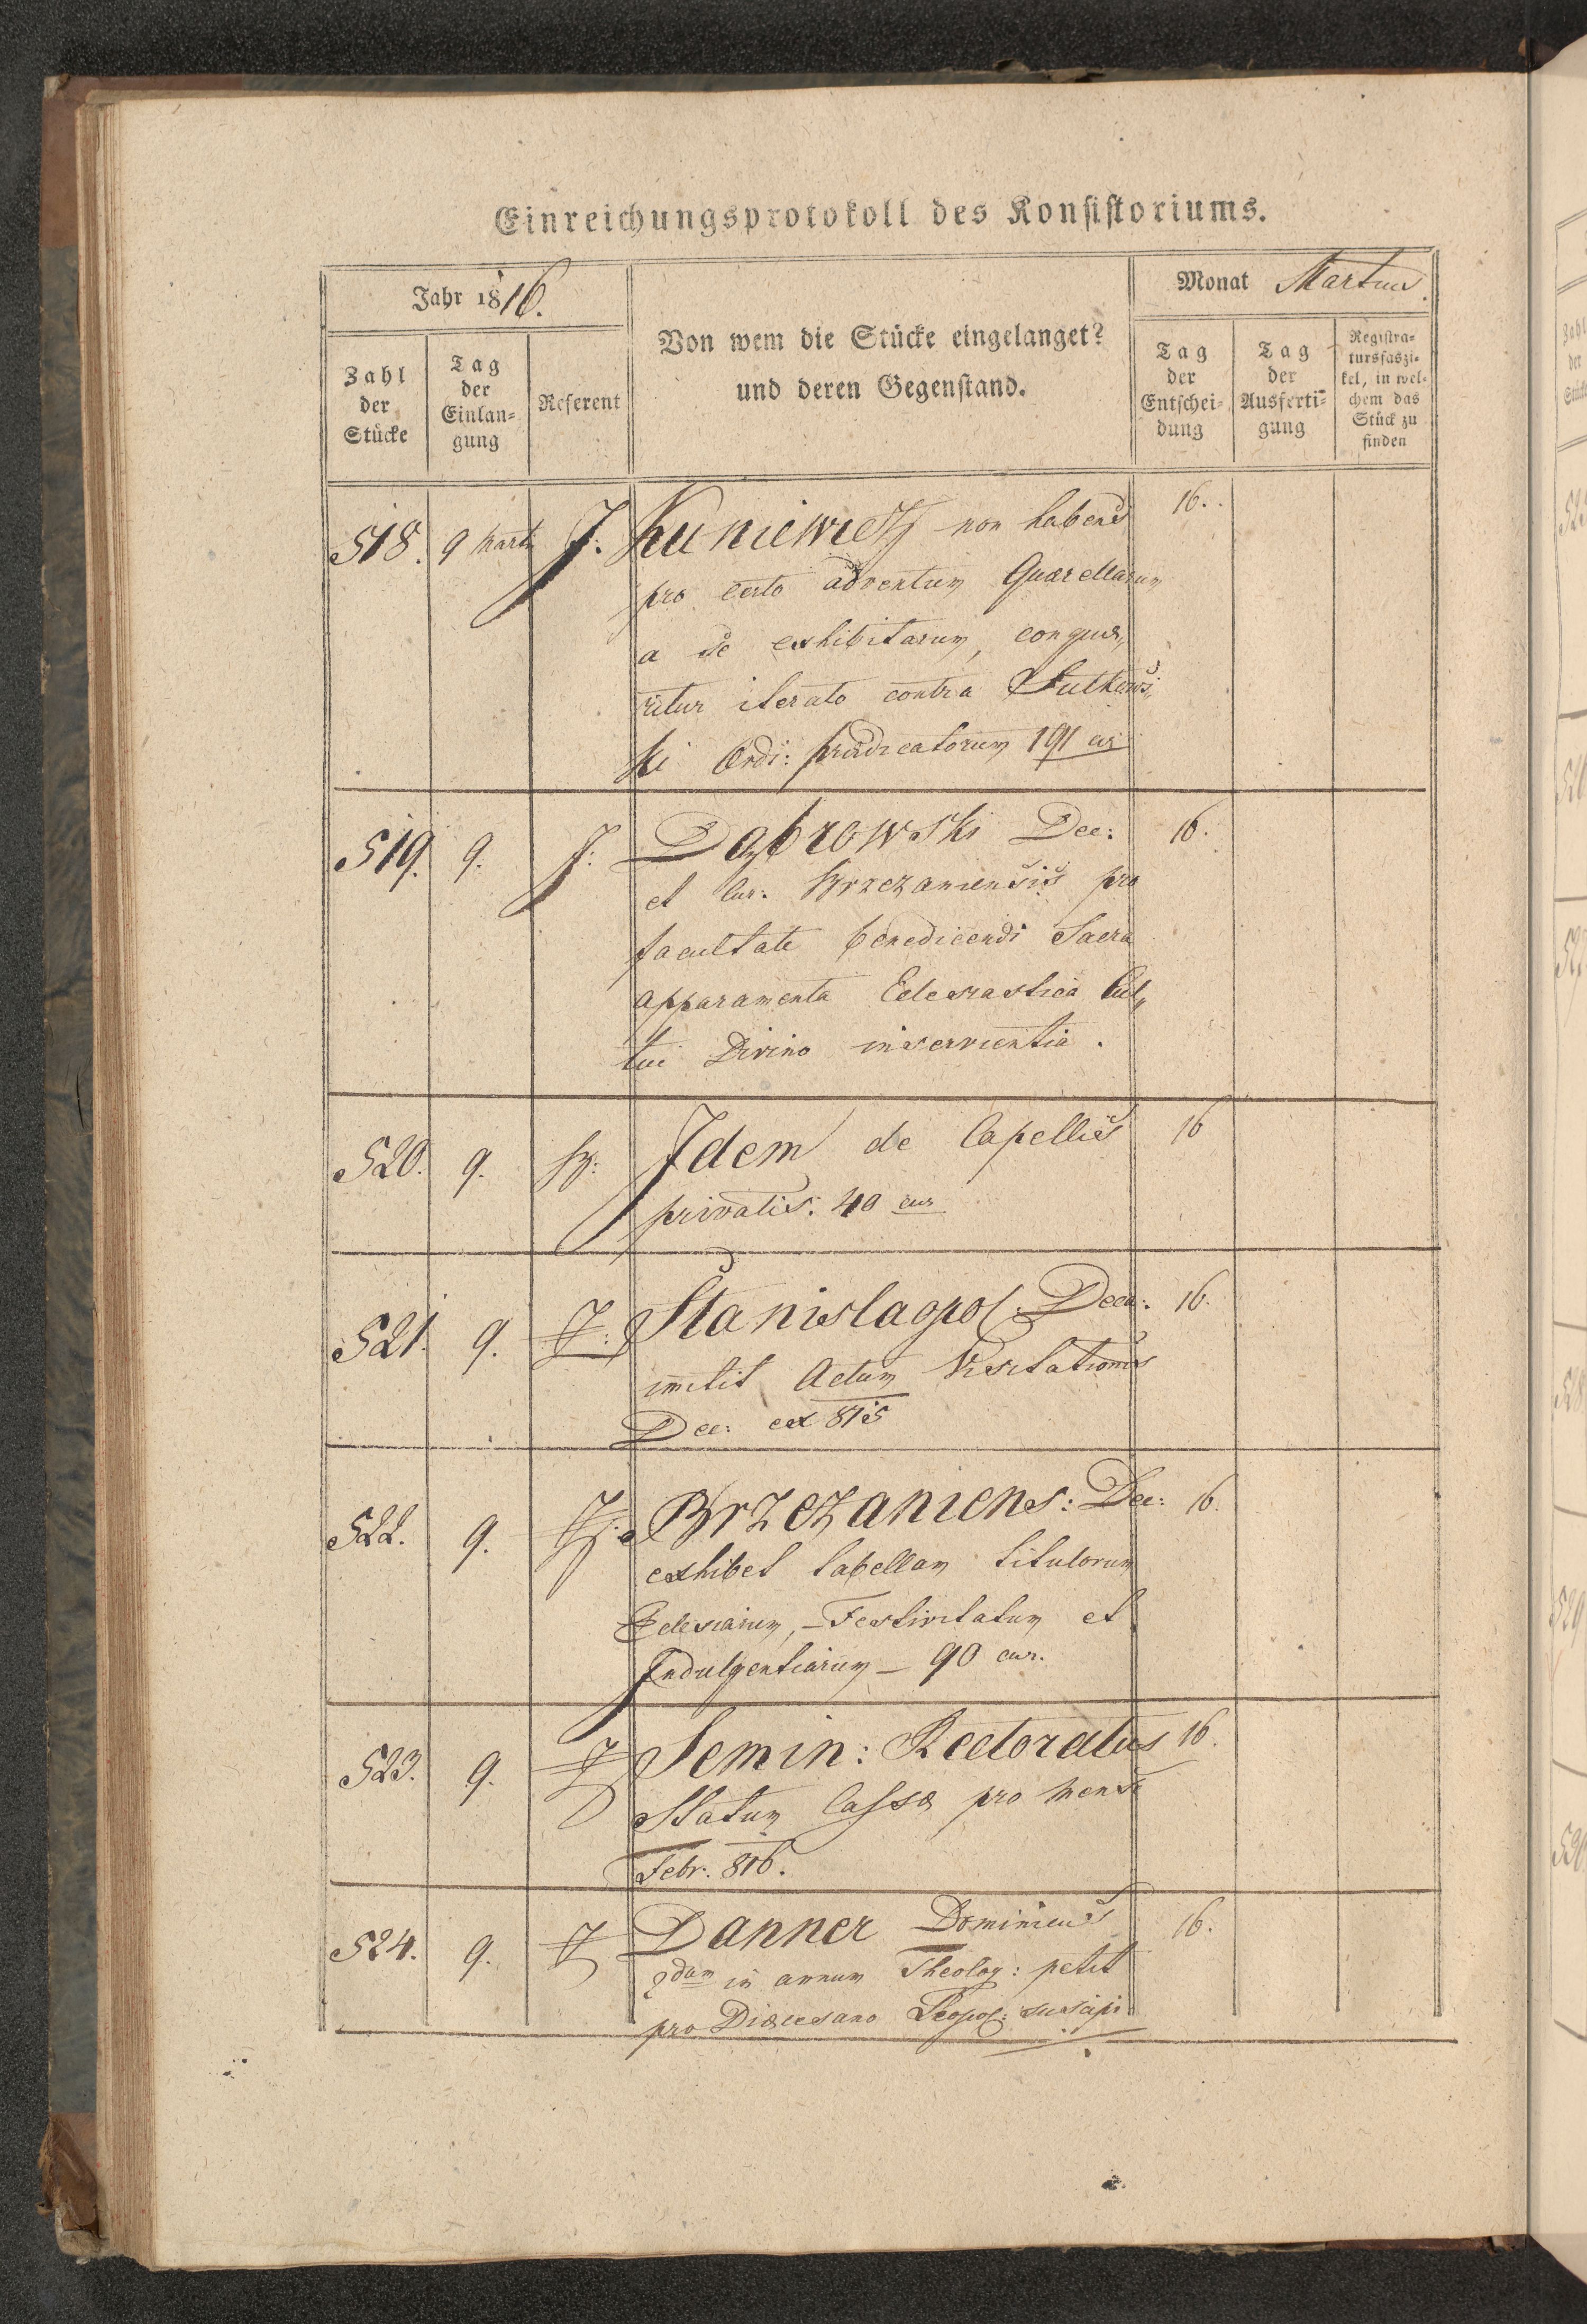 Einreichungsprotokoll des Konsistoriums.
Jahr 1816.
Von wem die Stücke eingelanget?
und deren Gegenstand.
Monat Martius.
Zahl
der
Stücke
Tag
der
Einlan=
gung
Referent
Tag
der
Entschei=
dung
Tag
der
Ausferti=
gung
Registra=
tursfaszi=
kel, in wel=
chem das
Stück zu
finden
518. 9 J. Kuniewicz non habens 16.
pro certo adventum Quærellarum
a se exhibitarum, conquæ„
ritur iterato contra
ski Ordi: Prædicatorum 191 cur
519. 9. J. Dąbrowski Dec: 16.
et Cur: Brzezaniensis pro
facultate benedicendi Sacra
apparamenta Eclesiastica Cul„
tui Divino inservientia.
520. 9. Idem de Capellis 16
privatis. 40 cur
521. 9. J: Stanislaopol: Deca: 16.
mitit Actum Visitationis
Dec: ex 815
522. 9. Brzezaniens: Dec: 16.
exhibet tabellam titulorum
Eclesiarum, - Festivitatum et
Indulgentiarum - 90 cur.
523. 9. J Semin: Rectoratus 16.
Statum Cassæ pro mense
Febr. 816.
524. 9. J Danner Dominicus 16.
2dum in annum Theolog: petit
pro Diæcesano Leopol: suscipi